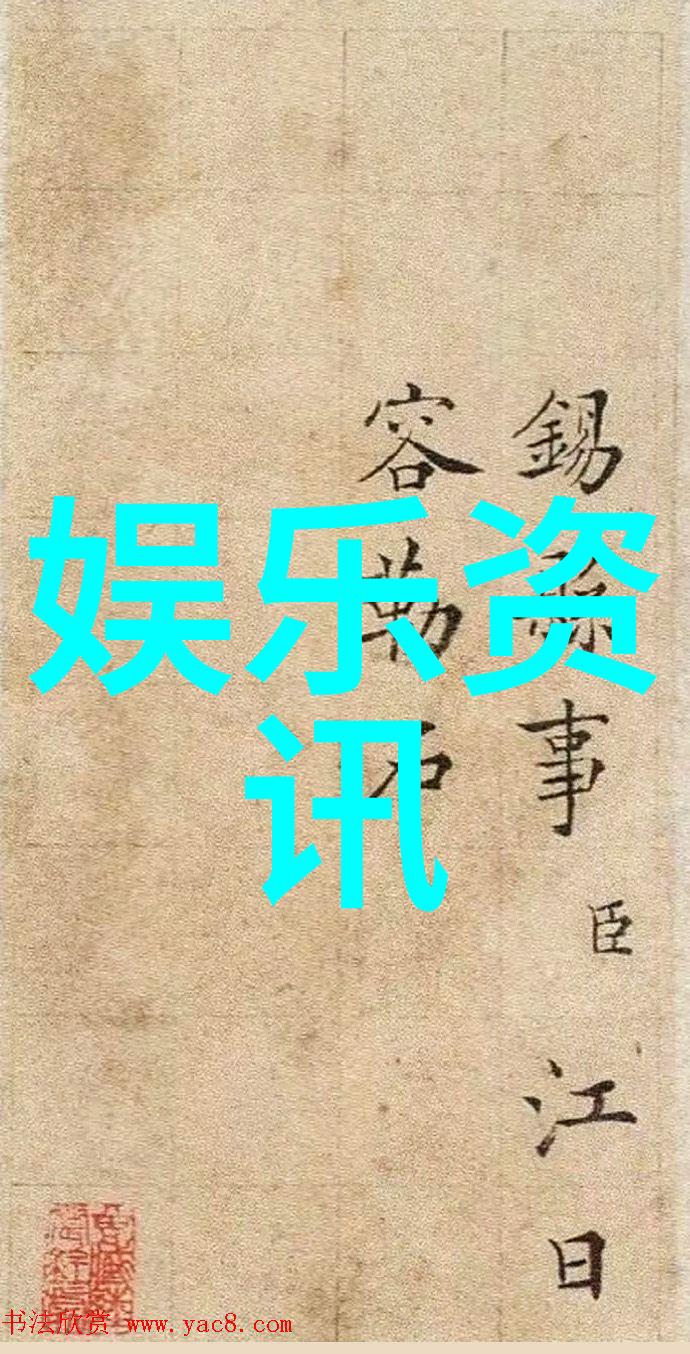 娱乐资
讯
錫縣事臣江日
容勒石
书法欣赏 www.yac8.com